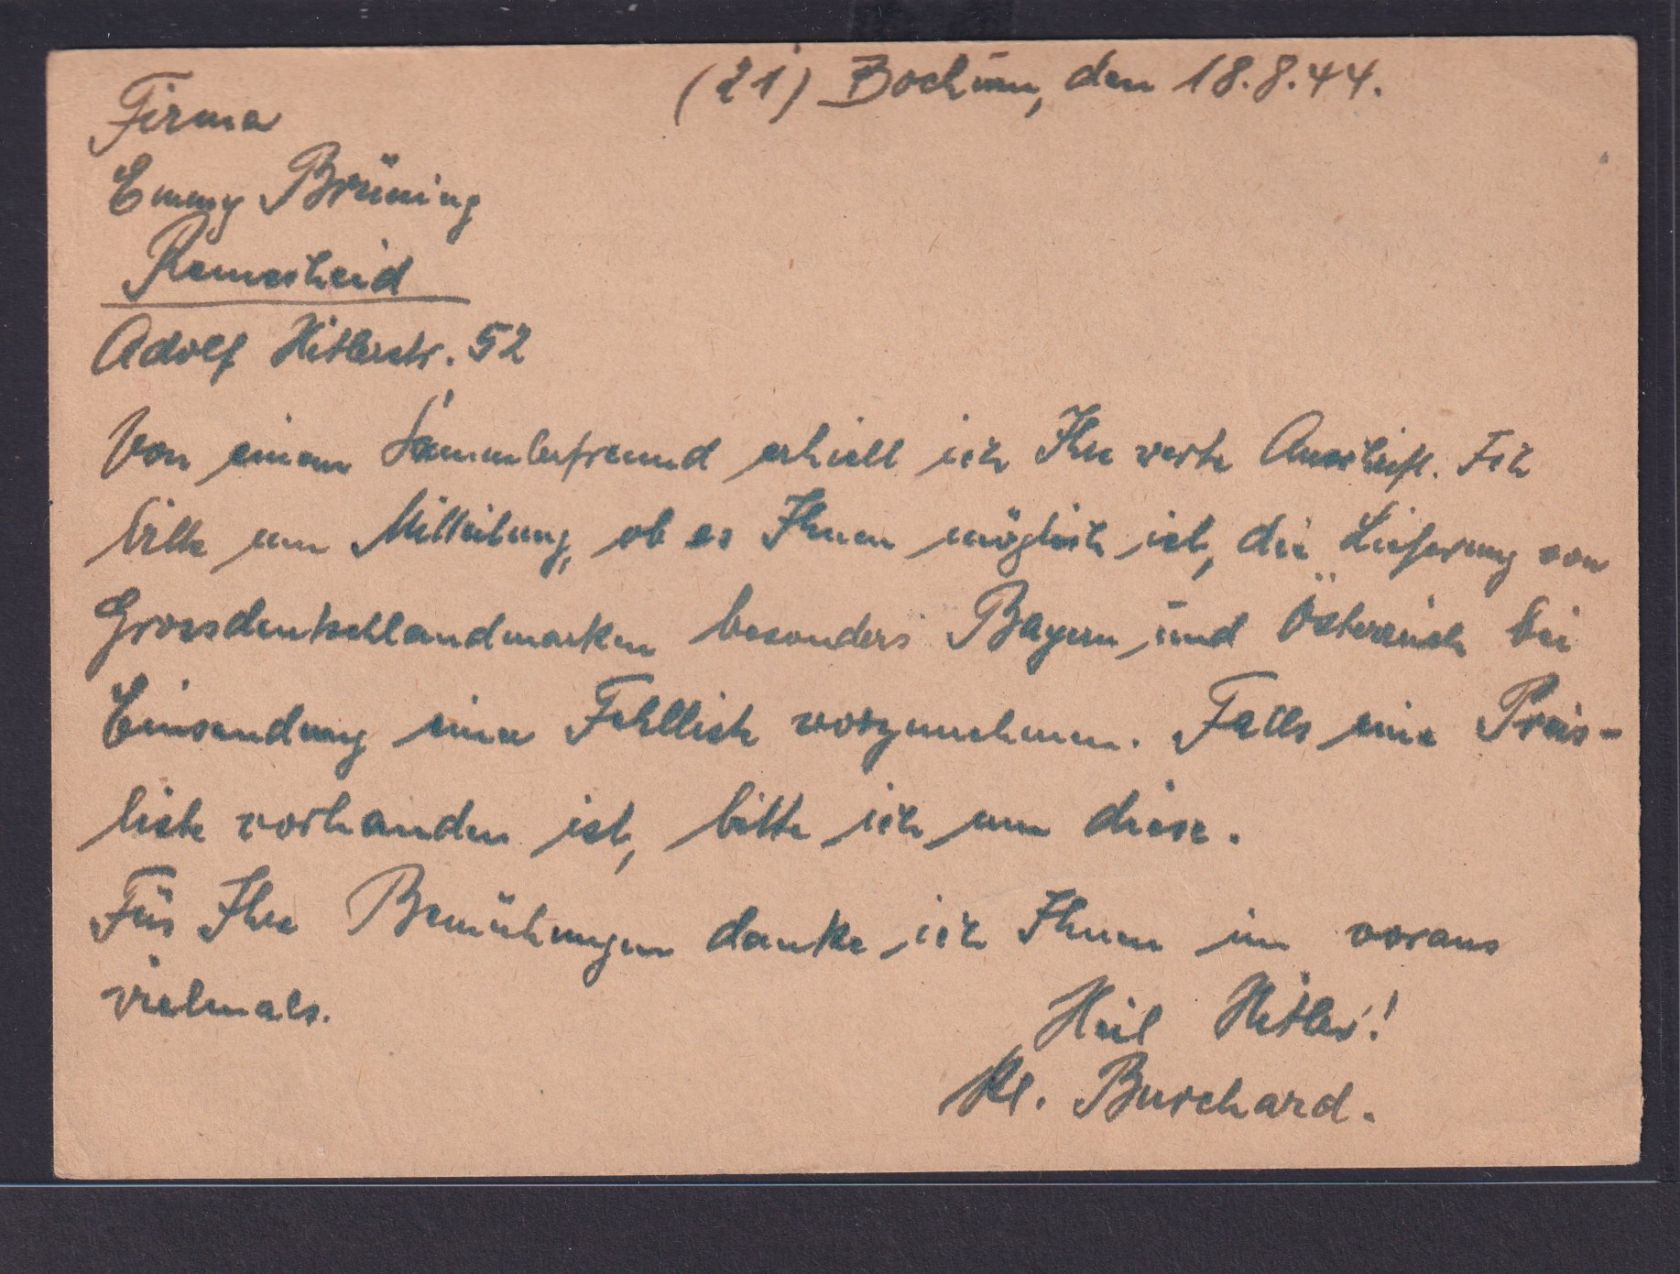 (21) Bochum, den 18.8.44.
Firma
Emmy Brüning
Remscheid
Adolf Hitlerstr. 52
Von einem Sammlerfreund erhielt ich Ihre werte Anschrift. Ich
bitte um Mitteilung, ob es Ihnen möglich ist, die Lieferung von
Grossdeutschlandmarken besonders Bayern und Österreich bei
Einsendung einer Fehlliste vorzunehmen. Falls eine Preis-
liste vorhanden ist, bitte ich um diese.
Für Ihre Bemühungen danke ich Ihnen im voraus
vielmals.
Heil Hitler!
Kl. Burchard.